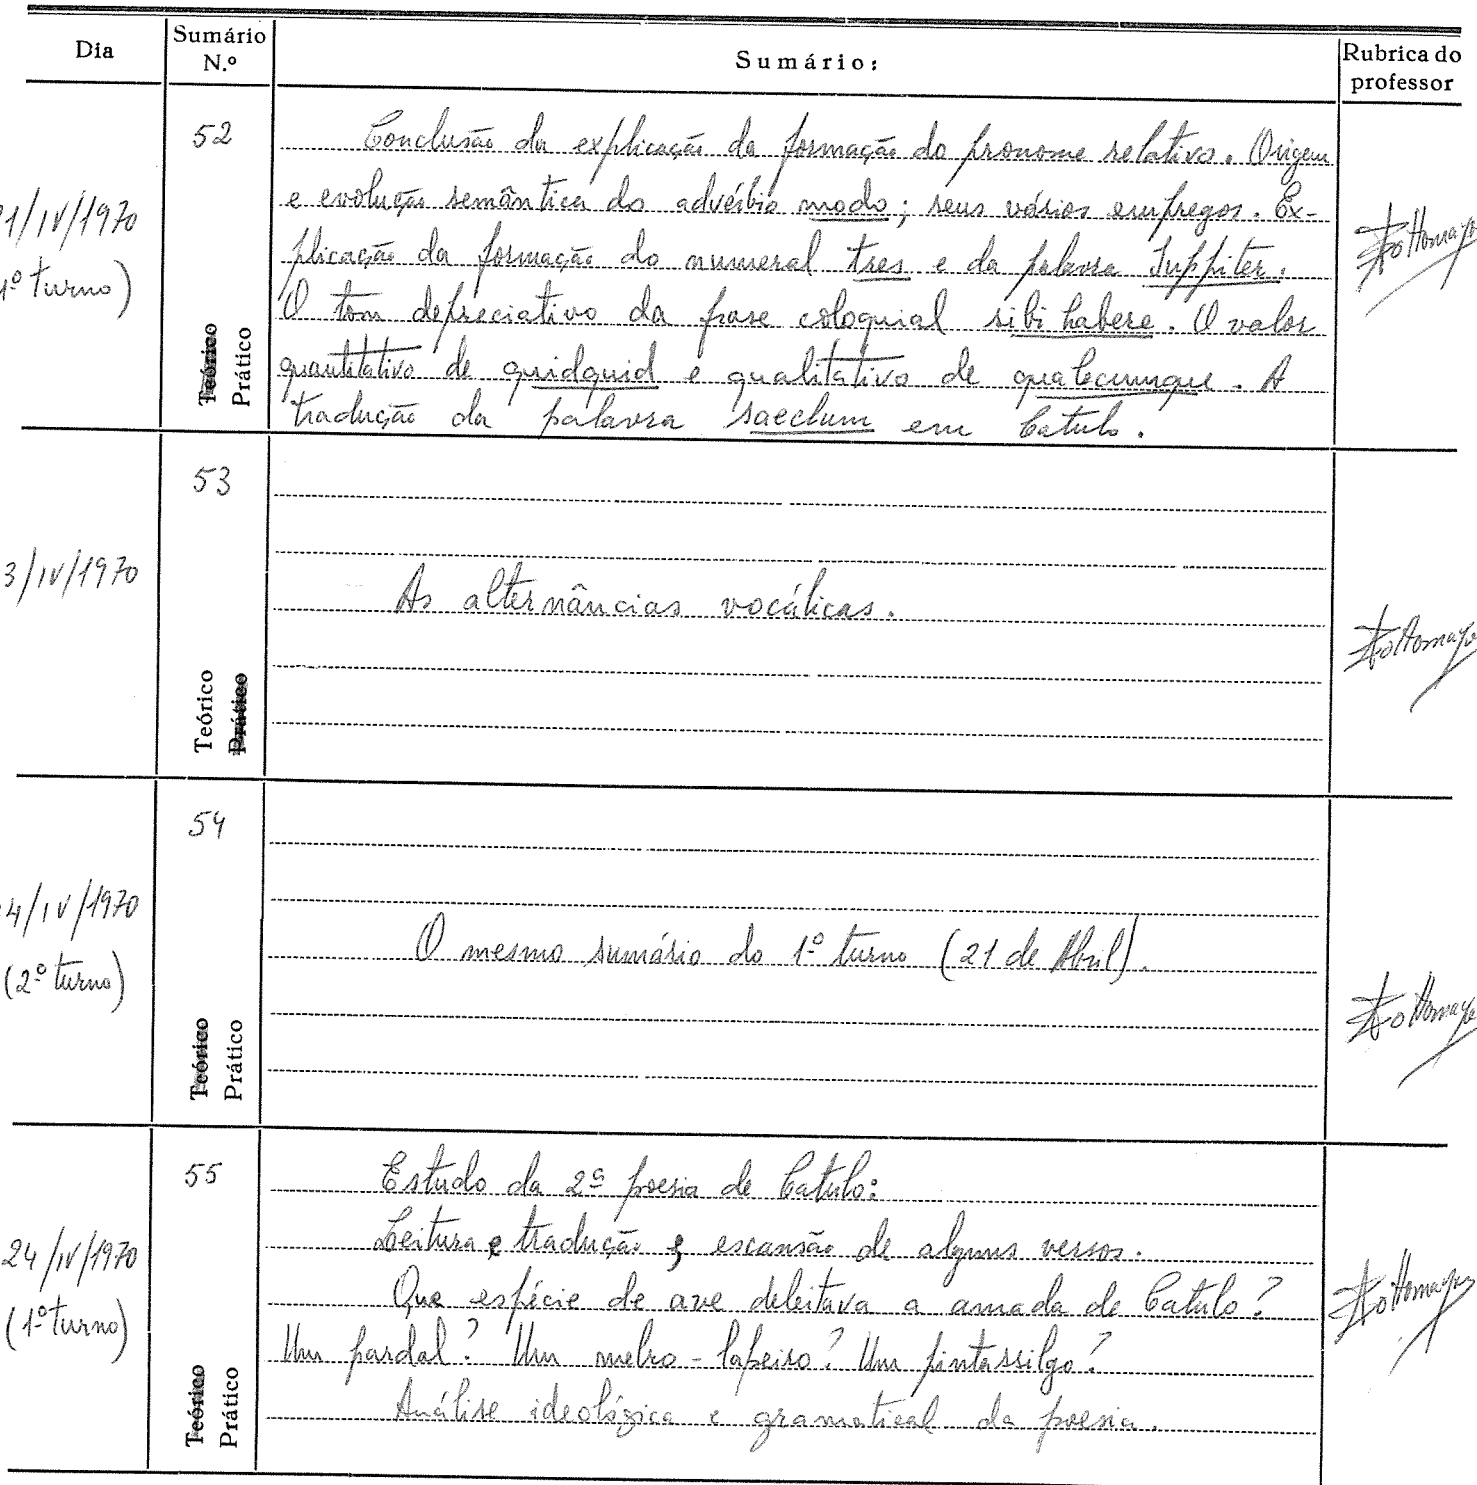 Dia
Sumário
N.º
Sumário:
Rubrica do
professor
1/IV/1970
1º turno)
52
Teórico
Prático
Conclusão da explicação da formação do pronome relativo. Origem
e evolução semântica do advérbio modo; seus vários empregos. Ex-
plicação da formação do numeral tres e da palavra Juppiter.
O tom depreciativo da frase coloquial sibi habere. O valor
quantitativo de quidquid e qualitativo de qualecumque. A
tradução da palavra saeclum em Catulo.
3/IV/1970
53
Teórico
Prático
As alternâncias vocálicas.
4/IV/1970
(2º turno)
54
Teórico
Prático
O mesmo sumário do 1º turno (21 de Abril).
24/IV/1970
(1º turno)
55
Teórico
Prático
Estudo da 2ª poesia de Catulo:
Leitura e tradução e escansão de alguns versos.
Que espécie de ave deleitava a amada de Catulo?
Um pardal? Um melro-lapeiro? Um pintassilgo?
Análise ideológica e gramatical da poesia.